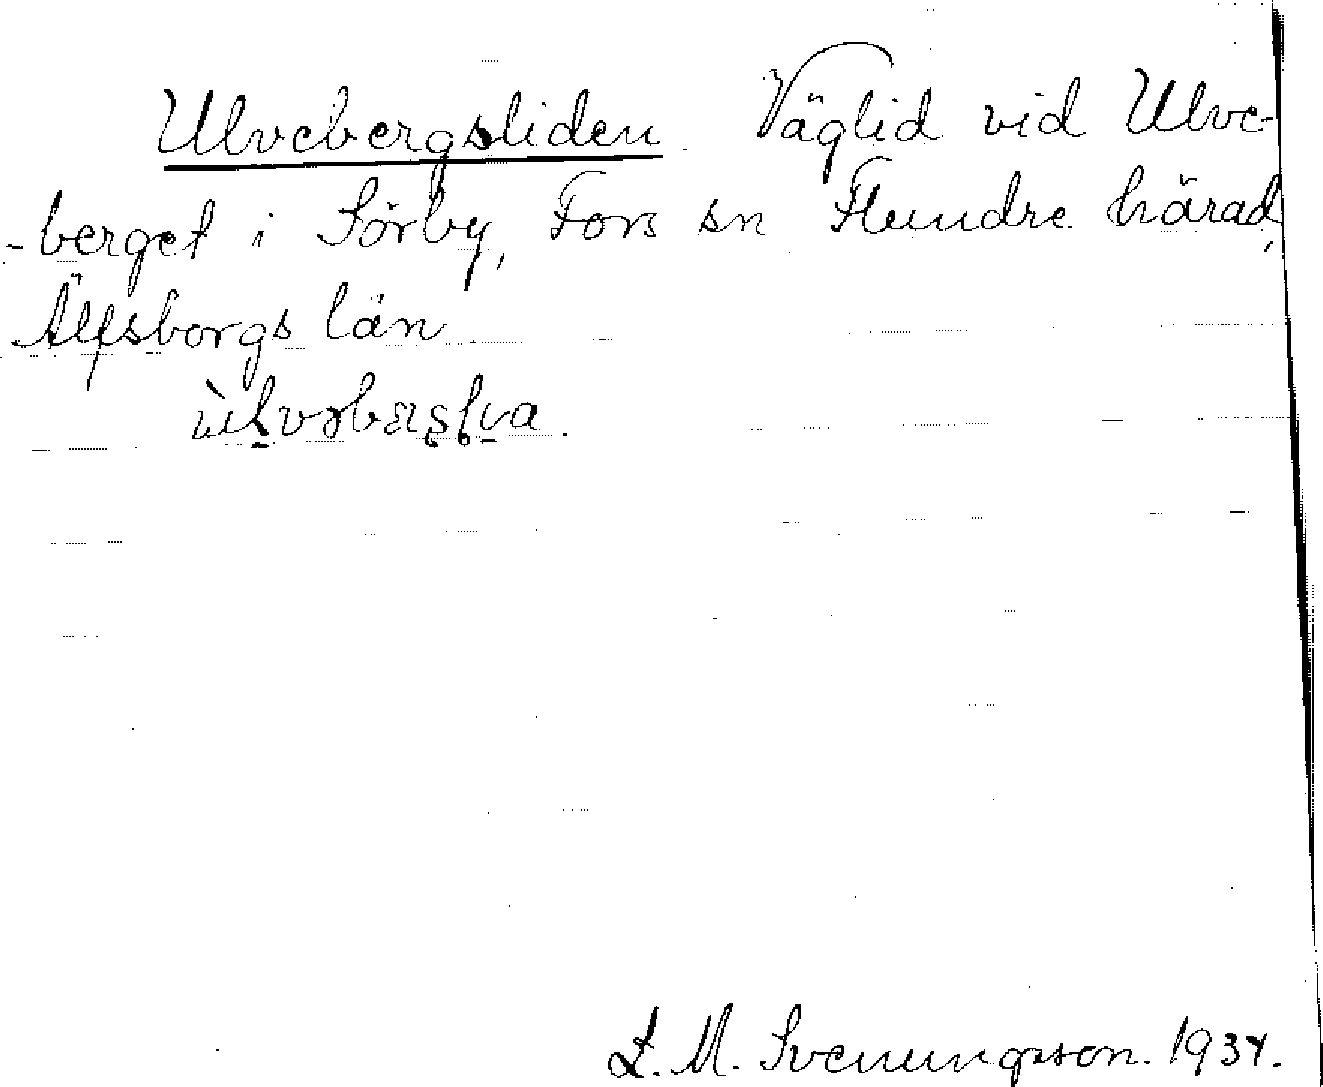 Ulvebergsliden. Väglid vid Ulve-
-berget i Sörby, Fors sn Flundre härad,
Älfsborgs län
L. M. Svenungsson. 1934.